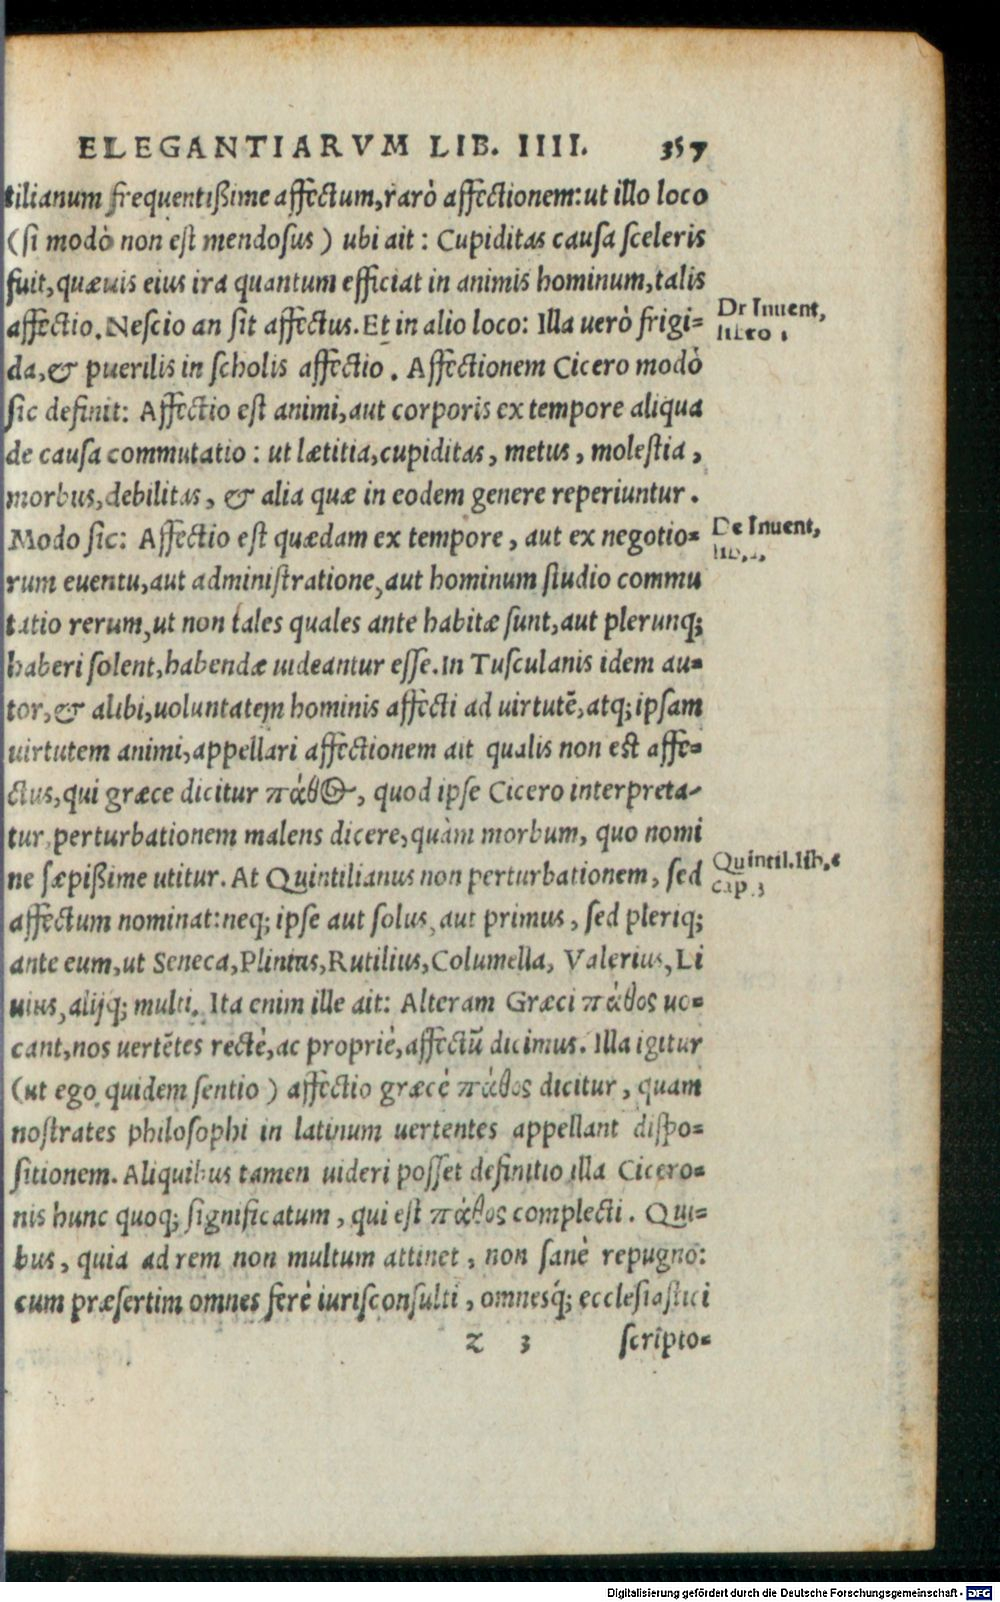 ELEGANTIARVM LIB. IIII. 357
tilianum frequentißime affectum, rarò affectionem: ut illo loco
(si modò non est mendosus) ubi ait: Cupiditas causa sceleris
fuit, quæuis eius ira quantum efficiat in animis hominum, talis
affectio. Nescio an sit affectus. Et in alio loco: Illa uerò frigi=
De Inuent,
libro 1
da, & puerilis in scholis affectio. Affectionem Cicero modò
sic definit: Affectio est animi, aut corporis ex tempore aliqua
de causa commutatio: ut lætitia, cupiditas, metus, molestia,
morbus, debilitas, & alia quæ in eodem genere reperiuntur.
Modo sic: Affectio est quædam ex tempore, aut ex negotio=
De Inuent,
lib.
rum euentu, aut administratione, aut hominum studio commu
tatio rerum, ut non tales quales ante habitæ sunt, aut plerunq;
haberi solent, habendæ uideantur esse. In Tusculanis idem au=
tor, & alibi, uoluntatem hominis affecti ad uirtutē, atq; ipsam
uirtutem animi, appellari affectionem ait qualis non est affe=
ctus, qui græce dicitur πάθος, quod ipse Cicero interpreta-
tur perturbationem malens dicere, quàm morbum, quo nomi
ne sæpißime utitur. At Quintilianus non perturbationem, sed
Quintil. lib. 6
cap. 3
affectum nominat: neq; ipse aut solus, aut primus, sed pleriq;
ante eum, ut Seneca, Plinius, Rutilius, Columella, Valerius, Li
uius, alijq; multi. Ita enim ille ait: Alteram Græci πάθος uo=
cant, nos uertētes rectè, ac propriè, affectū dicimus. Illa igitur
(ut ego quidem sentio) affectio græcè πάθος dicitur, quam
nostrates philosophi in latinum uertentes appellant dispo=
sitionem. Aliquibus tamen uideri posset definitio illa Cicero=
nis hunc quoq; significatum, qui est πάθος complecti. Qui=
bus, quia ad rem non multum attinet, non sanè repugno:
cum præsertim omnes ferè iurisconsulti, omnesq́; ecclesiastici
z 3 scripto=
Digitalisierung gefördert durch die Deutsche Forschungsgemeinschaft - DFG